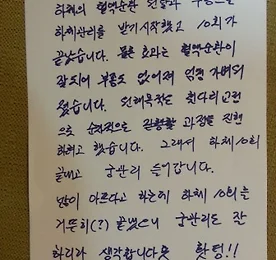 하체의 혈액순환 전달과 부종으로
하체관리를 받기 시작했고 10회가
끝났습니다. 물론 효과는 혈액순환이
잘되어 부종도 없어져 엄청 가벼워
졌습니다. 원래목적도 휜다리교정
으로 순차적으로 과정을 진행
하려고 했습니다. 그래서 하체10회
끝내고 들어갑니다.
많이 아프다고 하는데 하체 10회를
거뜬히(?) 끝냈으니 잘
하리라 생각합니다 핫팅!!